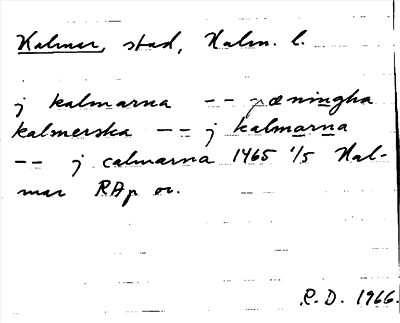 Kalmar, stad, Kalm. l.
j kalmarna -- pæningha
kalmerska -- j kalmarna
-- j calmarna 1465 1/5 Kal-
mar RAp or.
R.D. 1966.